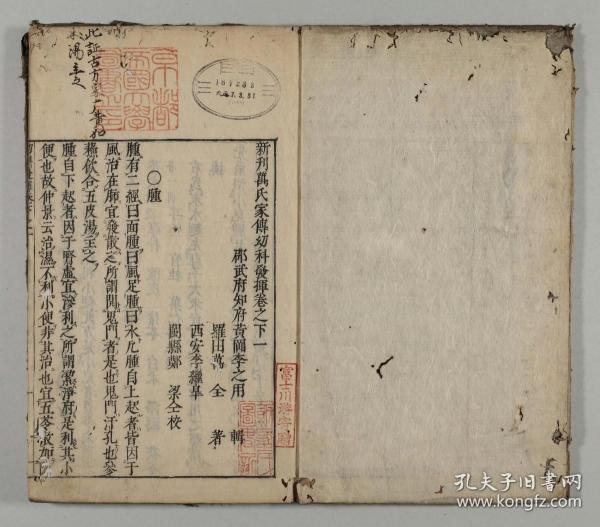 新刊萬氏家傳幼科發揮卷之下一
邵武府知府黃岡李之用 輯
羅田萬 全 著
西安李繼皐
閩縣鄭 梁仝校
○腫
腫有二經曰面腫曰風足腫曰水凡腫自上起者皆因于
風治在肺宜發散之所謂開鬼門者是也鬼門汗孔也參
蘇飲合五皮湯主之
腫自下起者因于腎虛宜滲利之所謂潔淨府是利其小
便也故仲景云治濕不利小便非其治也宜五苓散加
此証古方
湯主之
京都
帝國大學
圖書之印
187288
大正7.3.31
富士川游寄贈
孔夫子旧书网
www.kongfz.com